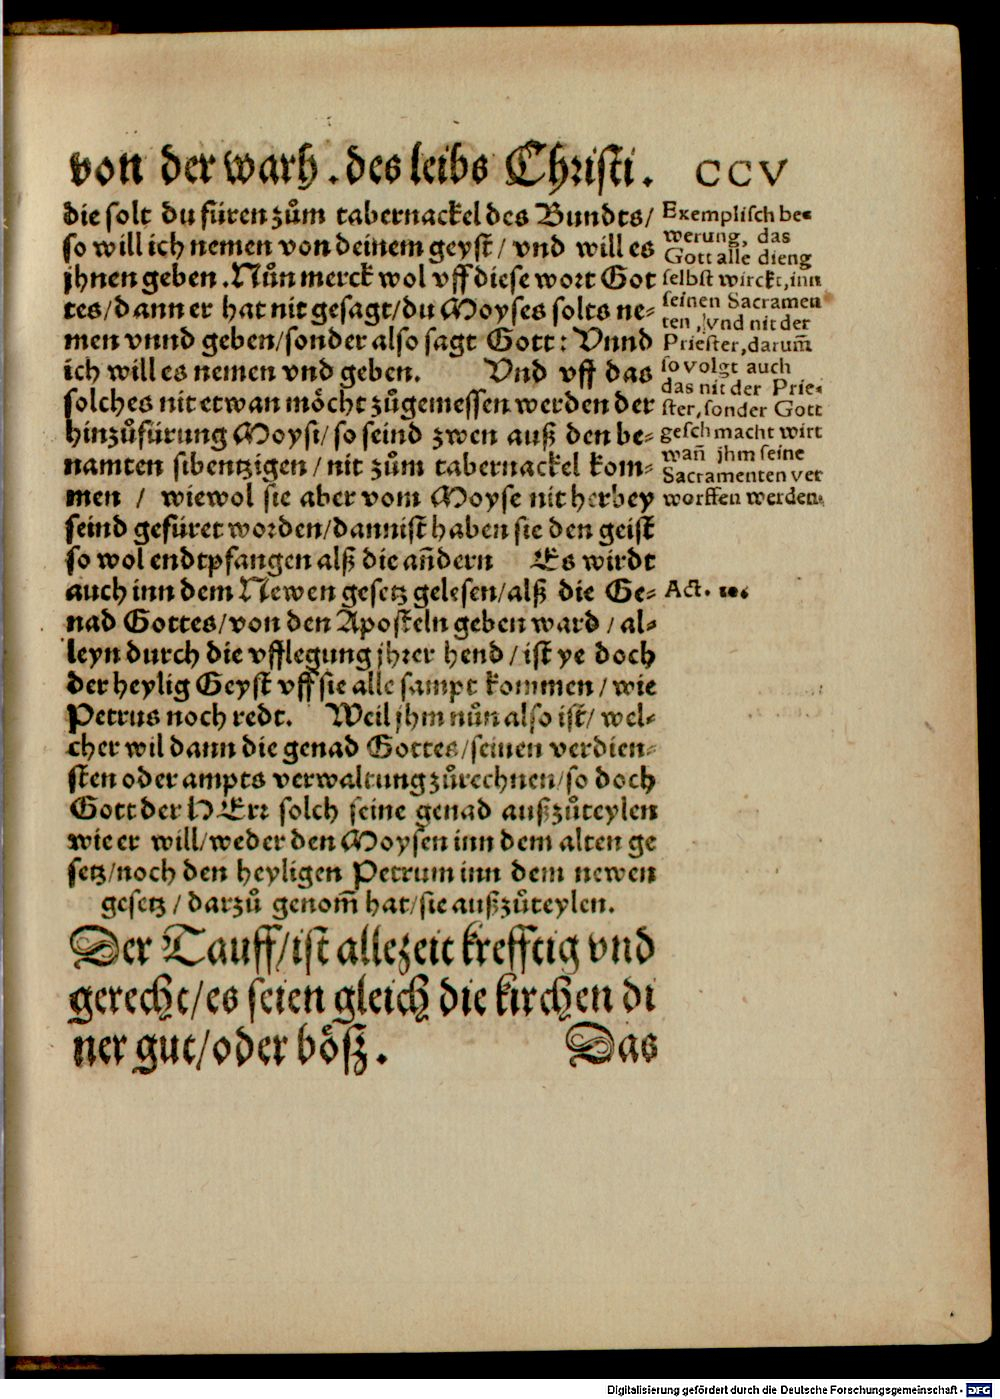 von der warh . des leibs Christi . CCV
die solt du füren zům tabernackel des Bundts/
so will ich nemen von deinem geyst/ vnd will es
jhnen geben . Nůn merck wol vff diese wort Got
tes/dann er hat nit gesagt/du Moyses solts ne-
men vnnd geben/sonder also sagt Gott: Vnnd
ich will es nemen vnd geben. Vnd vff das
solches nit etwan möcht zůgemessen werden der
hinzůfürung Moysi/so seind zwen auß den be-
namten sibentzigen/nit zům tabernackel kom-
men / wiewol sie aber vom Moyse nit herbey
seind gefüret worden/dannist haben sie den geist
so wol endtpfangen alß die añdern Es wirdt
auch inn dem Newen gesetz gelesen/alß die Ge-
nad Gottes/von den Aposteln geben ward/al-
leyn durch die vfflegung jhrer hend/ist ye doch
der heylig Geyst vff sie alle sampt kommen/wie
Petrus noch redt. Weil jhm nůn also ist/wel-
cher wil dann die genad Gottes/seinen verdien-
sten oder ampts verwaltung zůrechnen/so doch
Gott der HErr solch seine genad außzůteylen
wie er will/weder den Moysen inn dem alten ge
setz/noch den heyligen Petrum inn dem newen
gesetz/darzů genom̃ hat/sie außzůteylen.
Der Tauff/ist allezeit krefftig vnd
gerecht/es seien gleich die kirchen di
ner gut/oder bösz. Das
Exemplisch be-
werung, das
Gott alle dieng
selbst wirckt,inn
seinen Sacramen
ten,vnd nit der
Priester,darum̃
so volgt auch
das nit der Prie-
ster,sonder Gott
geschmacht wirt
wañ jhm seine
Sacramenten ver
worffen werden.
Act.
Digitalisierung gefördert durch die Deutsche Forschungsgemeinschaft - DFG